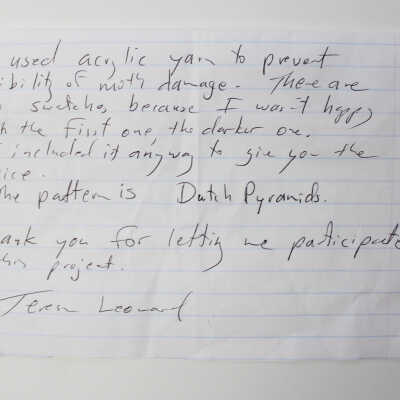 used acrylic yarn to prevent
ibility of moth damage. There are
swatches because I wasn't happy
the first one, the darker one.
included it anyway to give you the
ice.
he pattern is Dutch Pyramids.
ank you for letting me participate
this project.
Leonard